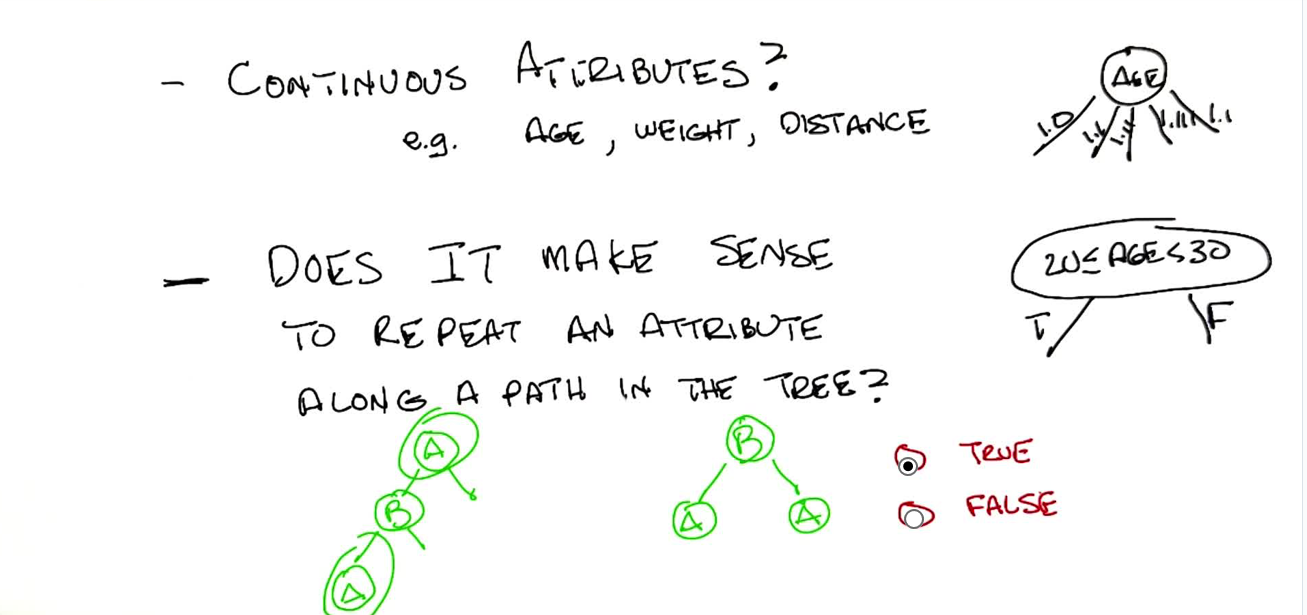 - CONTINUOUS ATTRIBUTES?
e.g. AGE, WEIGHT, DISTANCE
AGE
1.0 1.1 1.11 1.111 1.1
- DOES IT MAKE SENSE
TO REPEAT AN ATTRIBUTE
ALONG A PATH IN THE TREE?
20≤ AGE<30
T F
A
B
A
B
A A
TRUE
FALSE